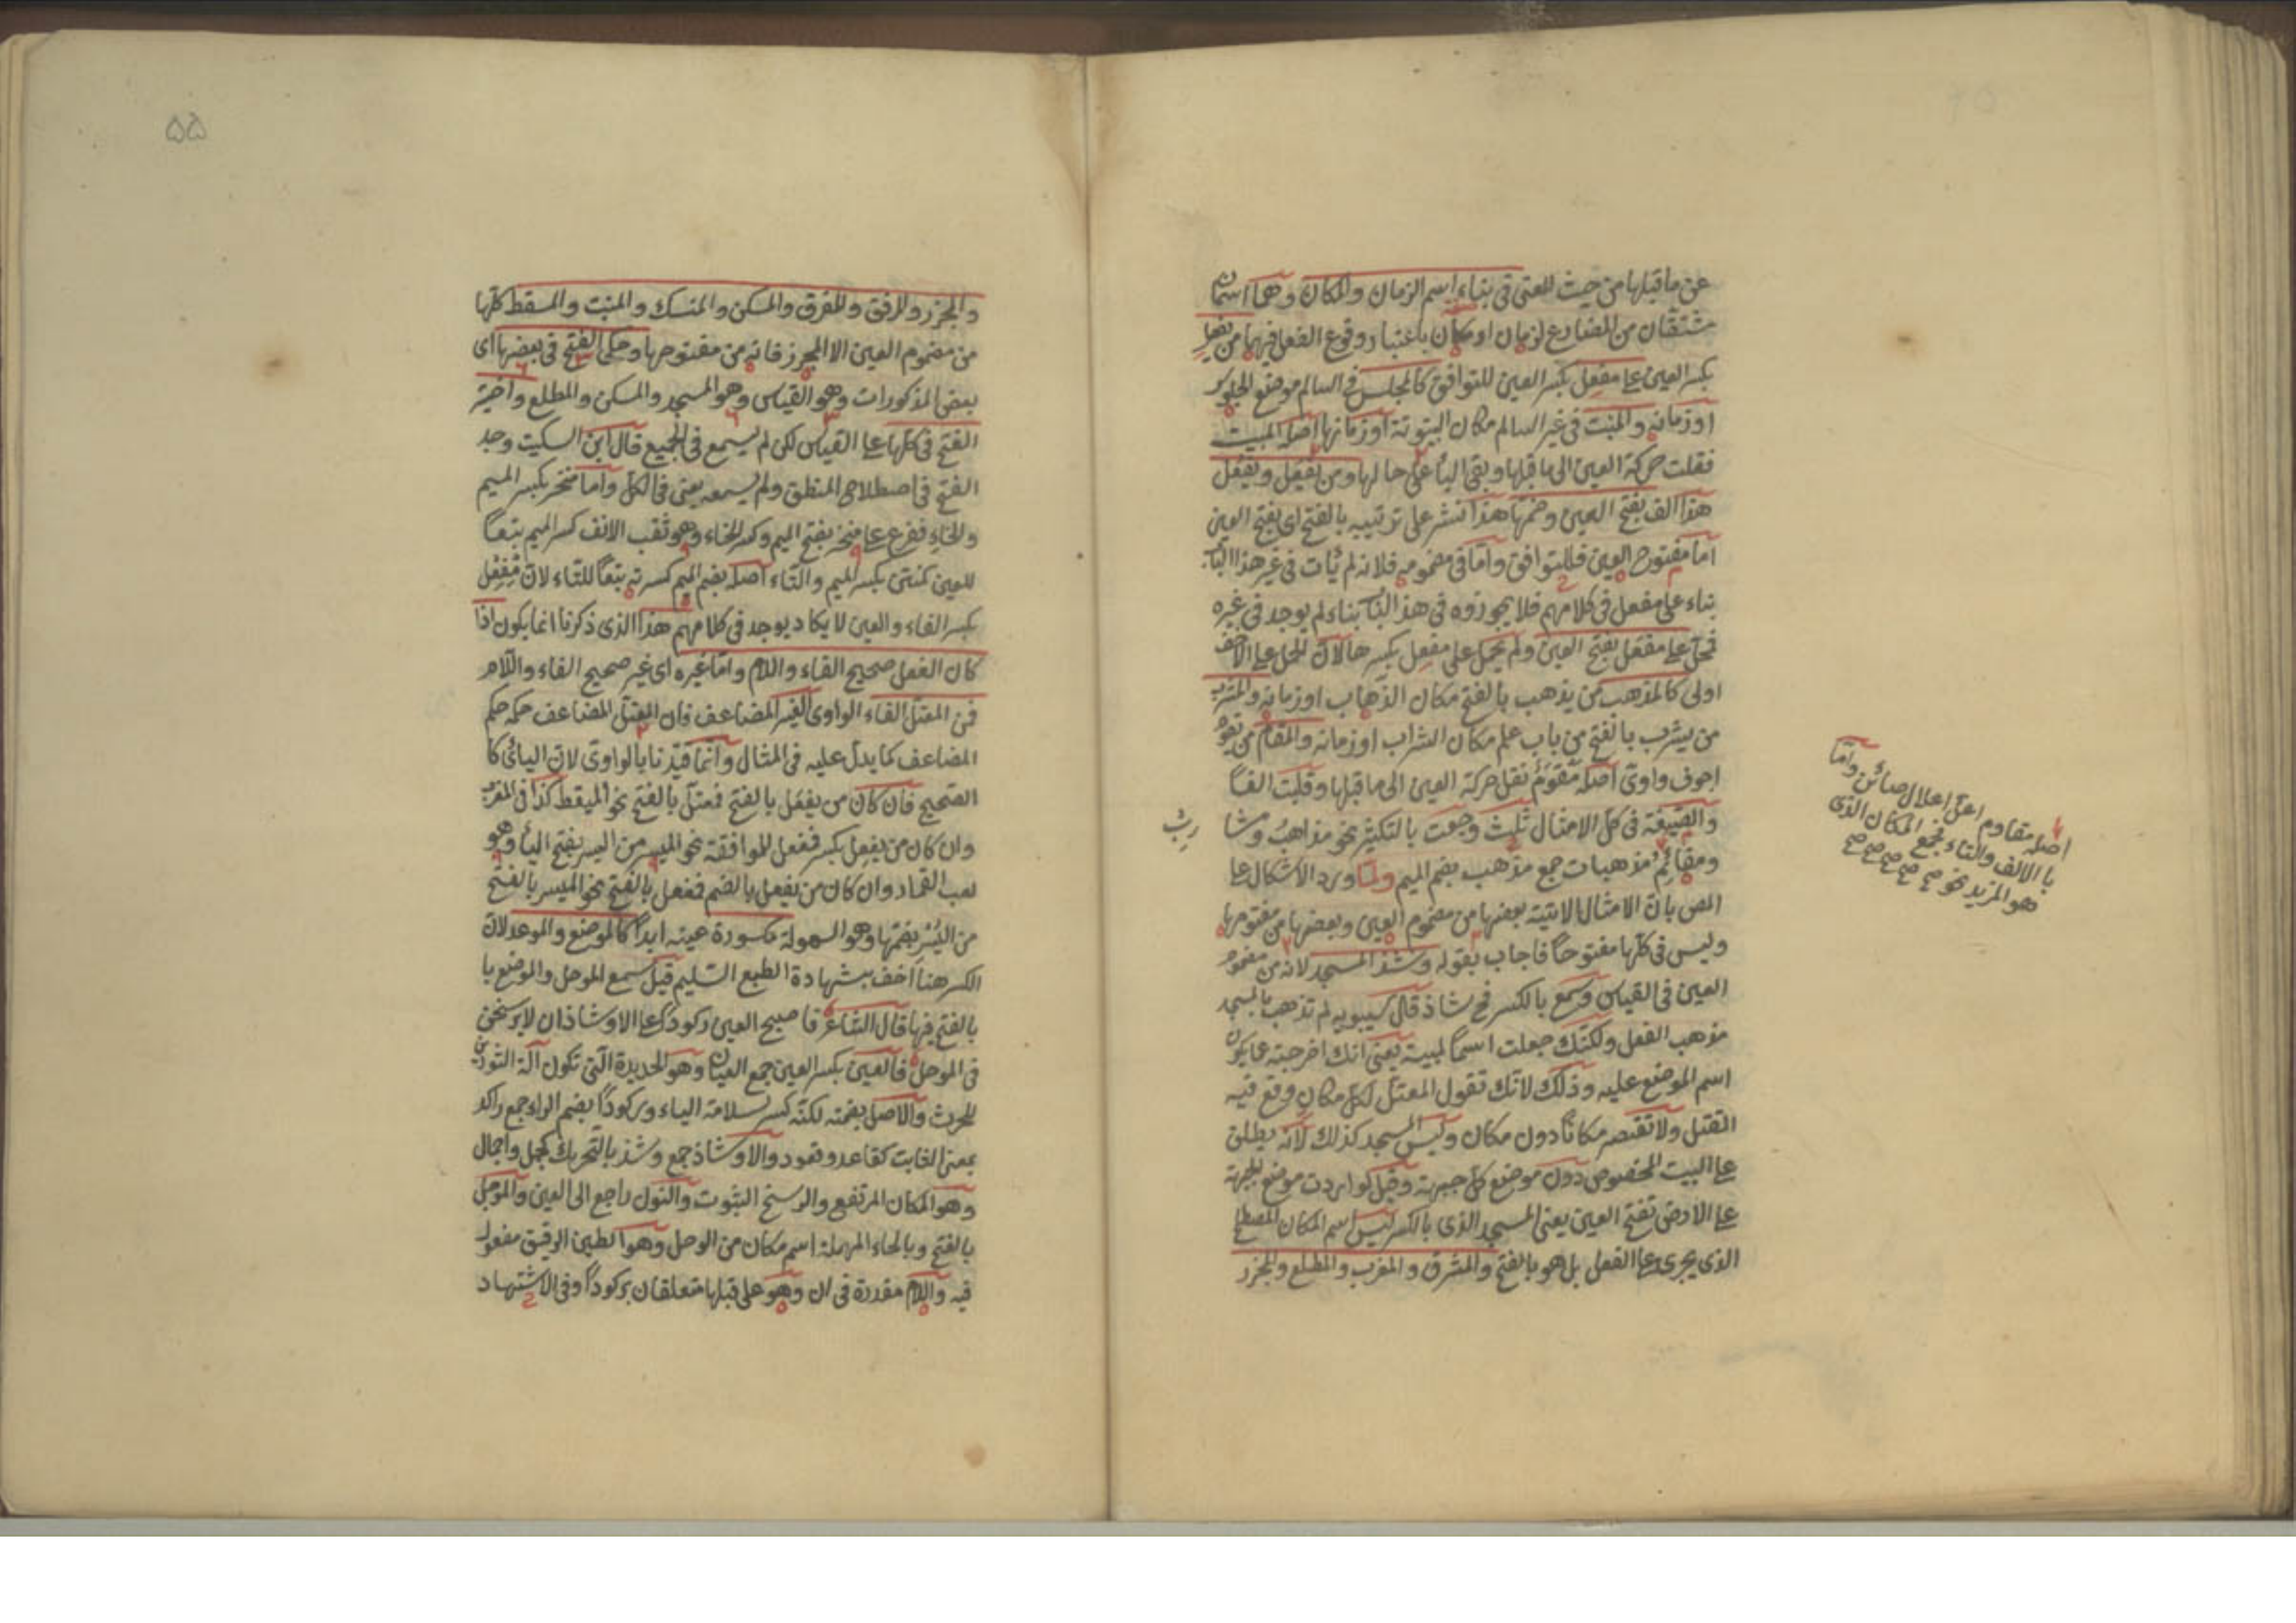 عن ما قبلها من حيث المعنى فى بناء اسم الزمان والمكان وهما اسمان
مشتقان من المضارع لزمان او مكان باعتبار وقوع الفعل فيهما من يفعل
بكسر العين على مفعل بكسر العين للتوافق كالمجلس فى السالم موضع الجلوس
او زمانه والمبيت فى غير السالم مكان البيتوتة او زمانها اصله المبيت
فقلت حركة العين الى ما قبلها وبقى الياء على حالها ومن يفعل ويفعل
هذا الف بفتح العين وضمها هذا نشر على ترتيبه بالفتح اى بفتح العين
اما مفتوح العين فللتوافق واما فى مضمومه فلانه لم يات فى غير هذا الباب
بناء على مفعل فى كلامهم فلا يجوزوه فى هذ الباب بناء لم يوجد فى غيره
فحمل على مفعل بفتح العين ولم يحمل على مفعل بكسرها لان الحمل على الاخف
اولى كالمذهب من يذهب بالفتح مكان الذهاب او زمانه والمشرب
من يشرب بالفتح من باب علم مكان الشراب او زمانه والمقام من يقوم
اجوف واوى اصله مقوم نقل حركة العين الى ما قبلها وقلبت الفا
والصيغة فى كل الامثال ثلث وجمعت بالتكثير نحو مذاهب ومشا
رب
ومقائم مذهبات جمع مذهب بضم الميم ولما ورد الاشكال على
المص بان الامثال الاتية بعضها من مضموم العين وبعضها من مفتوحها
وليس فى كلها مفتوحا فاجاب بقوله وشذ المسجد لانه من مضموم
العين فى القياس وسمع بالكسر فح شاذ قال سيبويه لم تذهب بالمسجد
مذهب الفعل ولكنك جعلت اسما لبيت يعنى انك اخرجته عما يكون
اسم الموضع عليه وذلك لانك تقول المقتل لكل مكان وقع فيه
القتل ولا تقتصر مكانا دون مكان وليس المسجد كذلك لانه يطلق
على البيت المخصوص دون موضع كل جبهة وقيل لو اردت موضع الجبهة
على الارض تفتح العين يعنى المسجد الذى بالكسر ليس اسم المكان المصطلح
الذى يجرى على الفعل بل هو بالفتح والمشرق والمغرب والمطلع والمجزر
اصله مقاوم اعل اعلال صائن واما
بالالف والتاء فجمع المكان الذى
هو المزيد نحو صح صح صح صح صح
۵۵
والمجزر والمرفق والمفرق والمسكن والمنسك والمنبت والمسقط كلها
من مضموم العين الا المجزر فانه من مفتوحها وحكى الفتح فى بعضها اى
بعض المذكورات وهو القياس وهو المسجد والمسكن والمطلع واخيتر
الفتح فى كلها على القياس لكن لم يسمع فى الجميع قال ابن السكيت وجد
الفتح فى اصطلاح المنطق ولم يسمعه يعنى فى الكل واما منخر بكسر الميم
والخاء ففرع على منخر بفتح الميم وكسر الخاء وهو ثقب الانف كسر الميم تبعا
للعين كمنتن بكسر الميم والتاء اصله بضم الميم كسرته تبعا للتاء لان مفعل
بكسر الفاء والعين لا يكاد يوجد فى كلامهم هذا الذى ذكرنا انما يكون اذا
كان الفعل صحيح الفاء واللام واما غيره اى غير صحيح الفاء واللام
فمن المعتل الفاء الواوى الغير المضاعف فان المعتل المضاعف حكمه حكم
المضاعف كما يدل عليه فى المثال وانما قيدنا بالواوى لان اليائى كا
الصحيح فان كان من يفعل بالفتح فمعتل بالفتح نحو الميقظ كذا فى المغرب
وان كان من يفعل بكسر ففعل للموافقة نحو الميسر من اليسر بفتح الياء وهو
لعب القمار وان كان من يفعل بالضم ففعل بالفتح نحو الميسر بالفتح
من اليسر بضمها وهو السهولة مكسورة عينه ابدا كالموضع والموعد لان
الكسر هنا اخف بشهادة الطبع السليم قيل سمع الموحل والموضع با
بالفتح فيها قال الشاعر فاصبح العين ركودا على الاوشاذ ان لا يرسخن
فى الموحل فالعين بكسر العين جمع العيان وهو الحديدة التى تكون آلة الثورين
للحرث والاصل بضمته لكنه كسر لسلامة الياء وركودا بضم الراء جمع راكد
بمعنى الثابت كقاعد وقعود والاوشاذ جمع وشذ بالتحريك كجمل واجمال
وهو المكان المرتفع والرسخ الثبوت والنون راجع الى العين والموحل
بالفتح وبالحاء المهملة اسم مكان من الوحل وهو الطين الرقيق مفعول
فيه واللام مقدرة فى ان وهو على قبلها متعلقان بركودا وفى الاشتهاد